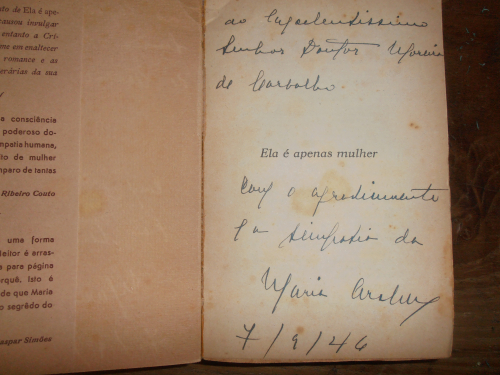 to de Ela é ape-
causou invulgar
entanto a Crí-
me em enaltecer
romance e as
erárias da sua
a consciência
poderoso do-
mpatia humana,
to de mulher
mparo de tantas
Ribeiro Couto
uma forma
leitor é erras-
a para página
rquê. Isto é
de que Maria
o segrêdo do
aspar Simões
ao Excelentíssimo
Senhor Doutor Moreira
de Carvalho.
Ela é apenas mulher
Com o agradecimento
e a simpatia da
Maria Archer
7/9/46